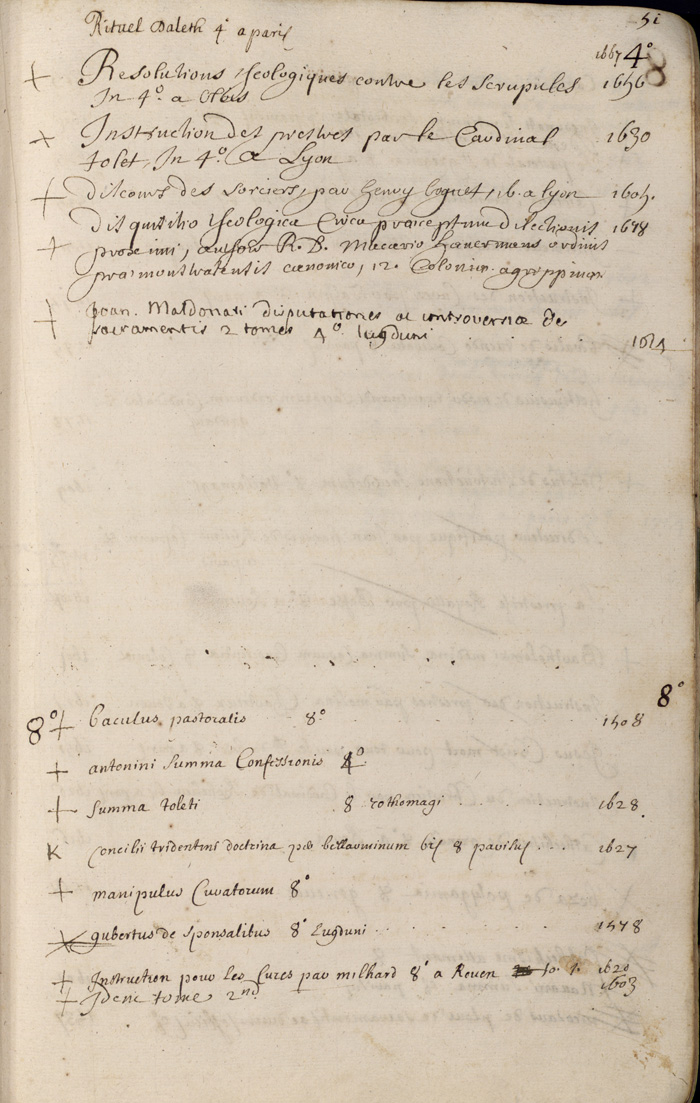 51
Rituel Daleth 4° a paris 1667 4°
+ Resolutions Theologiques contre les scrupules 1656
In 4°. a Blois
+ Instruction des prestres par le Cardinal 1630
tolet, In 4°. a Lyon
+ discours des sorciers, par henry boguet, a lyon
disquisitio Theologica Circa praeceptum dilectionis 1678
+ proximi, authore R. D. Macario havermans ordinis
praemonstratensis canonico, 12. Coloniae agrippinae
+ Joan. Maldonati disputationes ac controversiae de
sacramentis 2 tomes 4° lugduni 1614
8°
8° + baculus pastoralis 8° 1508
+ antonini Summa Confessionis 8°
+ Summa toleti 8 rothomagi 1628
K Concilii tridentini doctrina per bellarminum 8 parisiis 1627
+ manipulus Curatorum 8°
gubertus de sponsalibus 8° Lugduni 1578
+ Instruction pour les Cures par milhard 8° a Rouen to. 1. 1620
+ Idem tome 2nd 1603